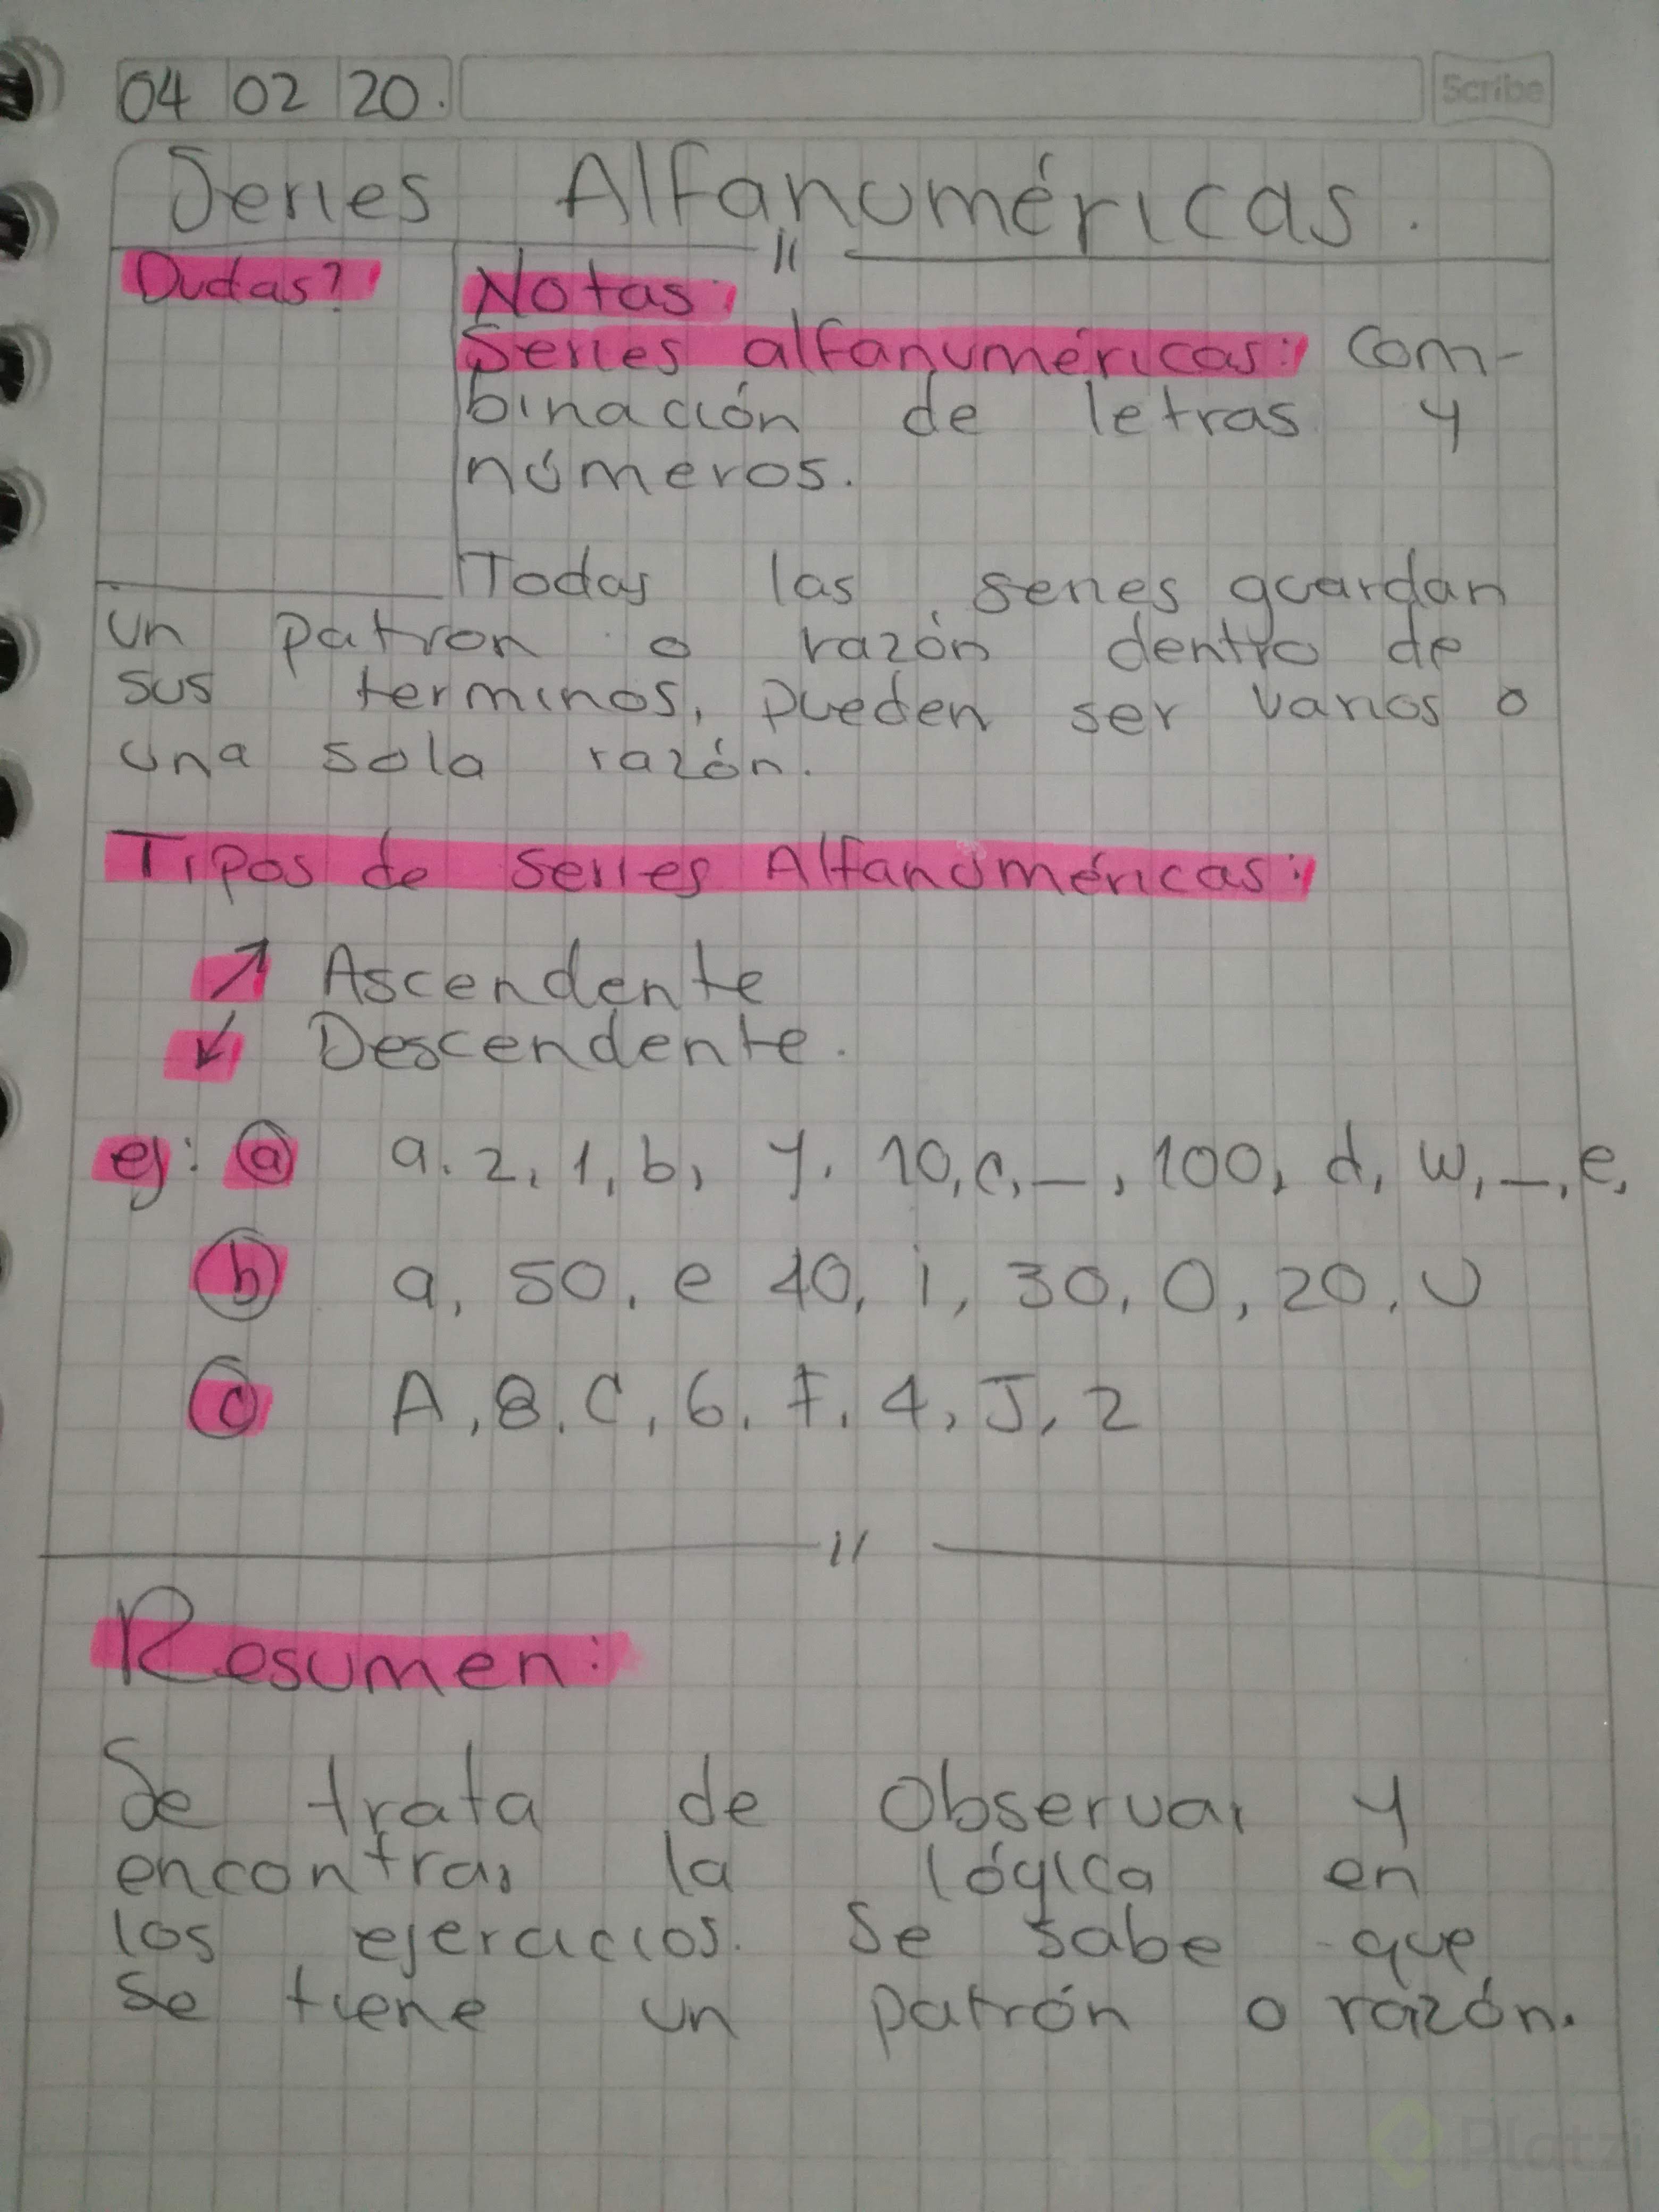 04 02 20.
Scribe
Series Alfanuméricas.
Dudas?
Notas:
Series alfanuméricas: Com-
binación de letras y
números.
Todas las series guardan
un patron o razón dentro de
sus terminos, pueden ser varios o
una sola razón.
Tipos de series Alfanúméricas:
↗ Ascendente
↙ Descendente.
ej: ⓐ a. 2, 1, b, y. 10, c, _, 100, d, w, _, e,
ⓑ a, 50, e 40, i, 30, O, 20, U
ⓒ A, 8, C, 6, F, 4, J, 2
Resumen:
Se trata de Observar y
encontrar la lógica en
los ejercicios. Se sabe que
se tiene un patrón o razón.
Platzi